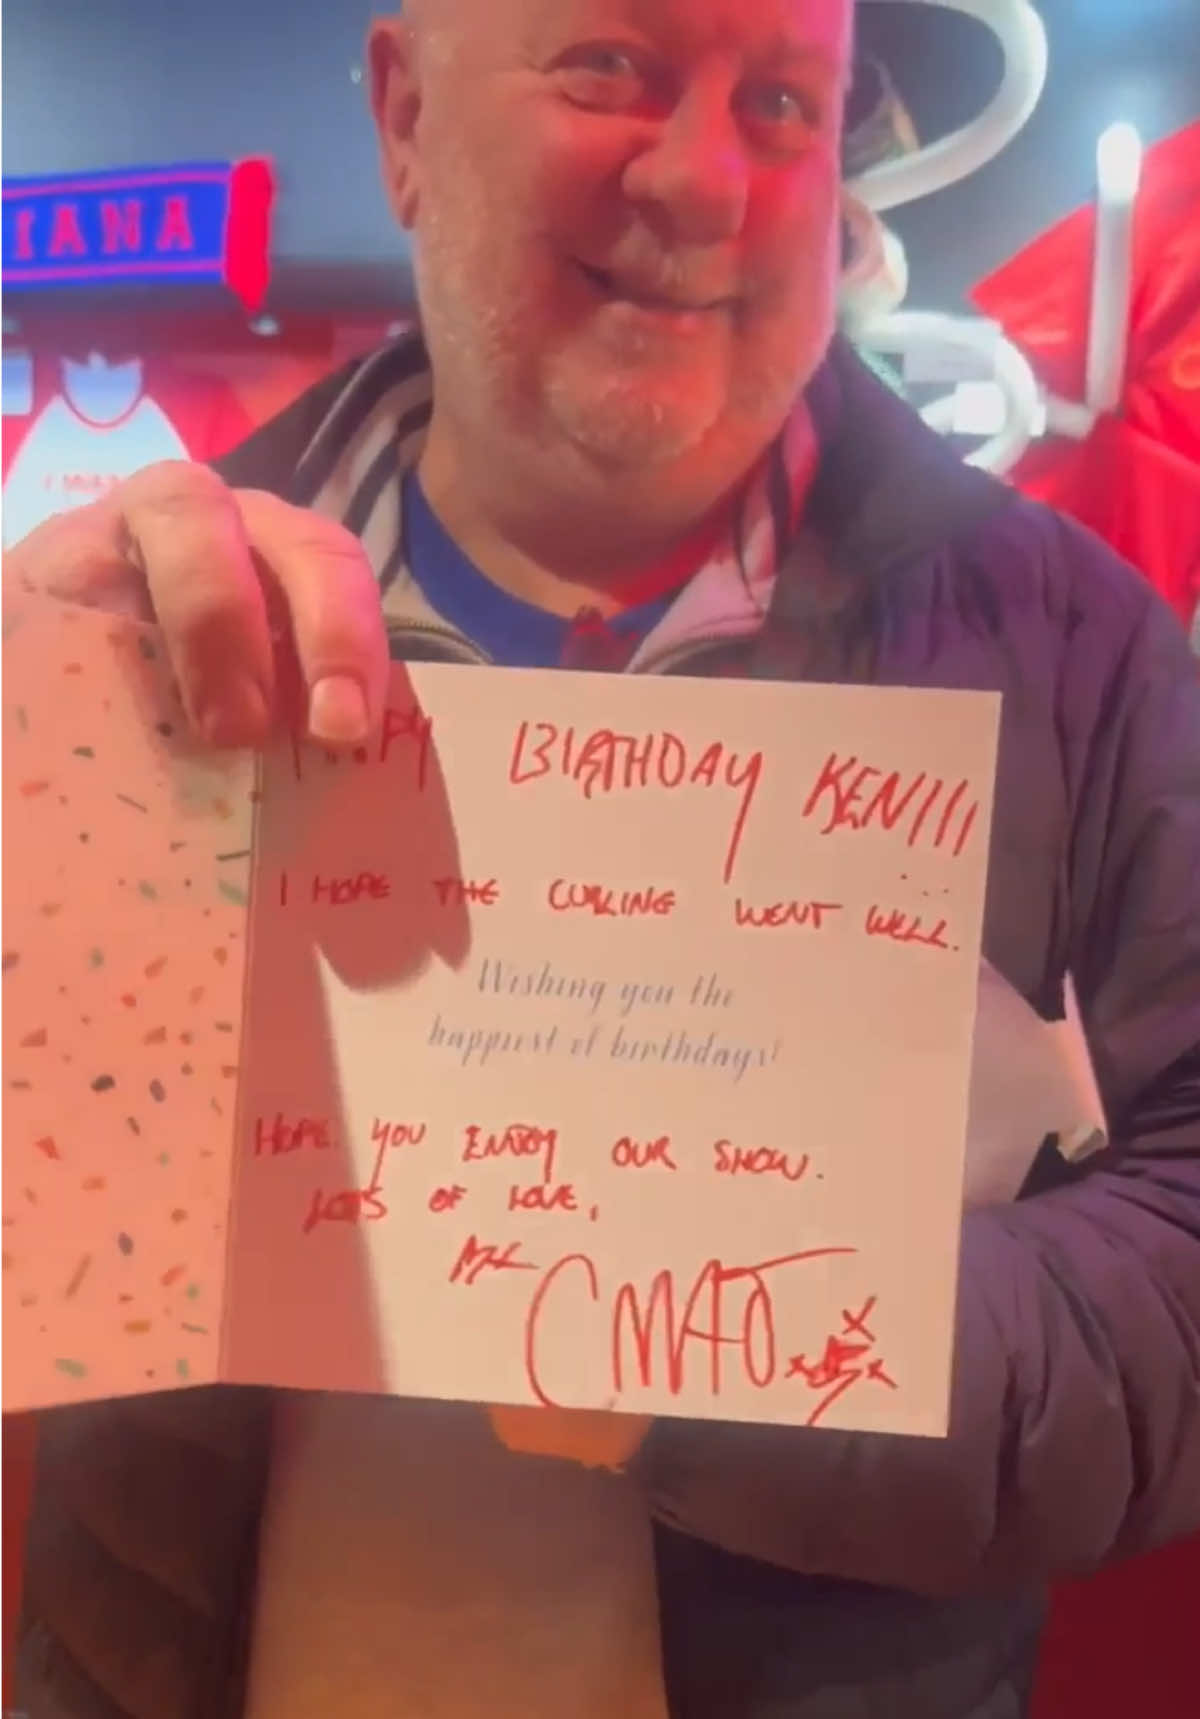 IANA
BIRTHDAY KEN!!!
I HOPE THE CURLING WENT WELL.
Wishing you the
happiest of birthdays!
HOPE YOU ENJOY OUR SHOW.
LOTS OF LOVE,
CMAT